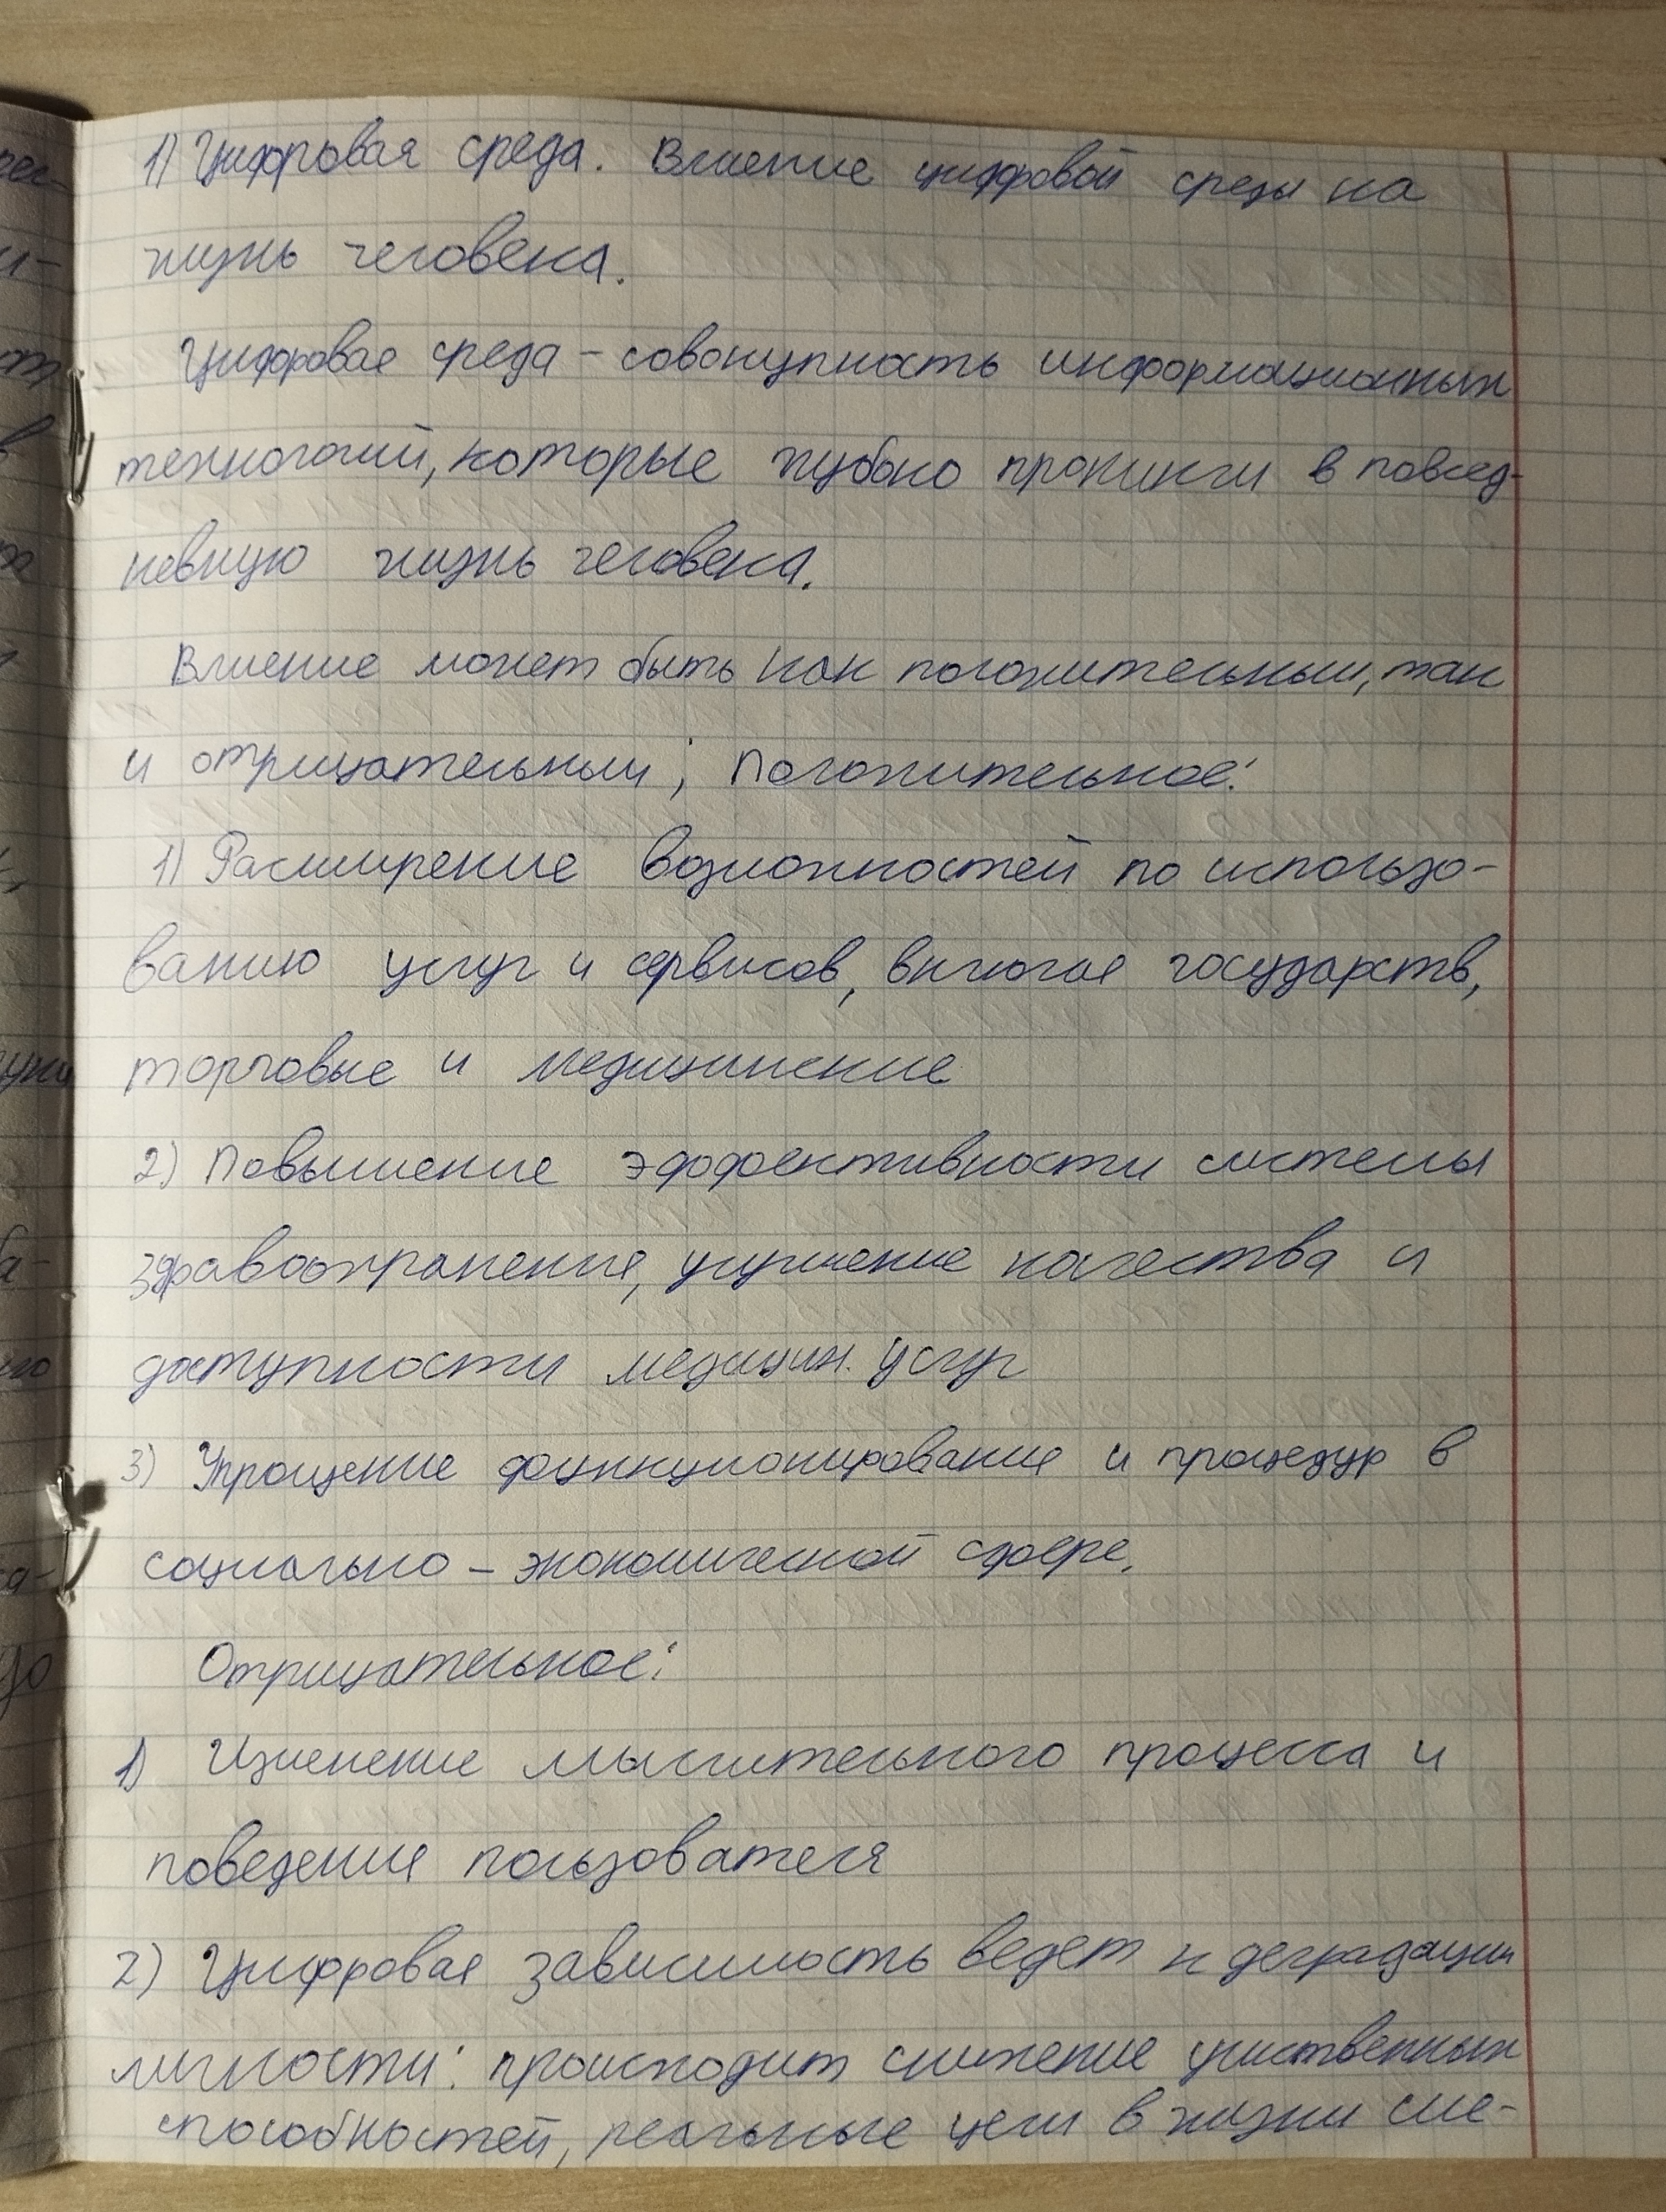 1) Цифровая среда. Влиение цифровой среды на
жизнь человека.
Цифровая среда – совокупность информационных
технологий, которые глубоко проникли в повсед-
невную жизнь человека.
Влиение может быть как положительным, так
и отрицательным; Положительное:
1) Расширение возможностей по использо-
ванию услуг и сервисов, включая государств,
торговые и медицинские
2) Повышение эффективности системы
здравоохранения, улучшение качества и
доступности медицин. услуг
3) Упрощение функционирования и процедур в
социально – экономической сфере.
Отрицательное:
1) Изменение мыслительного процесса и
поведения пользователя
2) Цифровая зависимость ведет к деградации
личности: происходит снижение умственных
способностей, реальные цели в жизни сме-